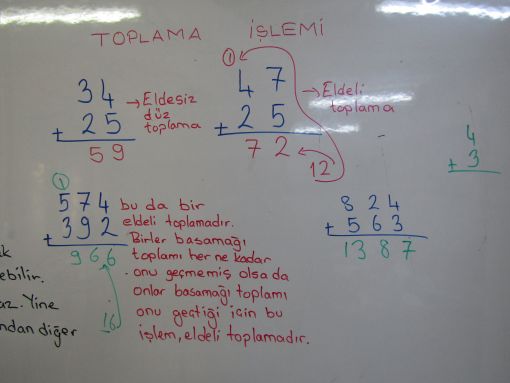 TOPLAMA İŞLEMİ
34
+ 25
59
→ Eldesiz
düz
toplama
1
47
+ 25
72
12
→ Eldeli
toplama
4
+ 3
1
574
+ 392
966
16
bu da bir
eldeli toplamadır.
Birler basamağı
toplamı her ne kadar
onu geçmemiş olsa da
onlar basamağı toplamı
onu geçtiği için bu
işlem, eldeli toplamadır.
824
+ 563
1387
ak
ebilir.
az. Yine
ndan diğer